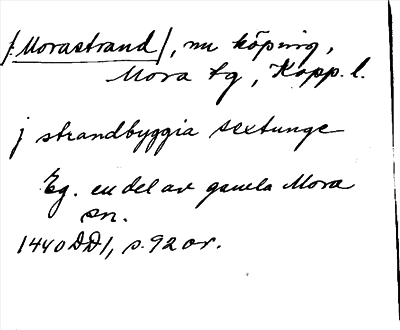 /: Morastrand/, nu köping,
Mora tg, Kopp. l.
j strandbyggia sextunge
Eg. en del av gamla Mora
sn.
1440 DD1, s. 92 or.